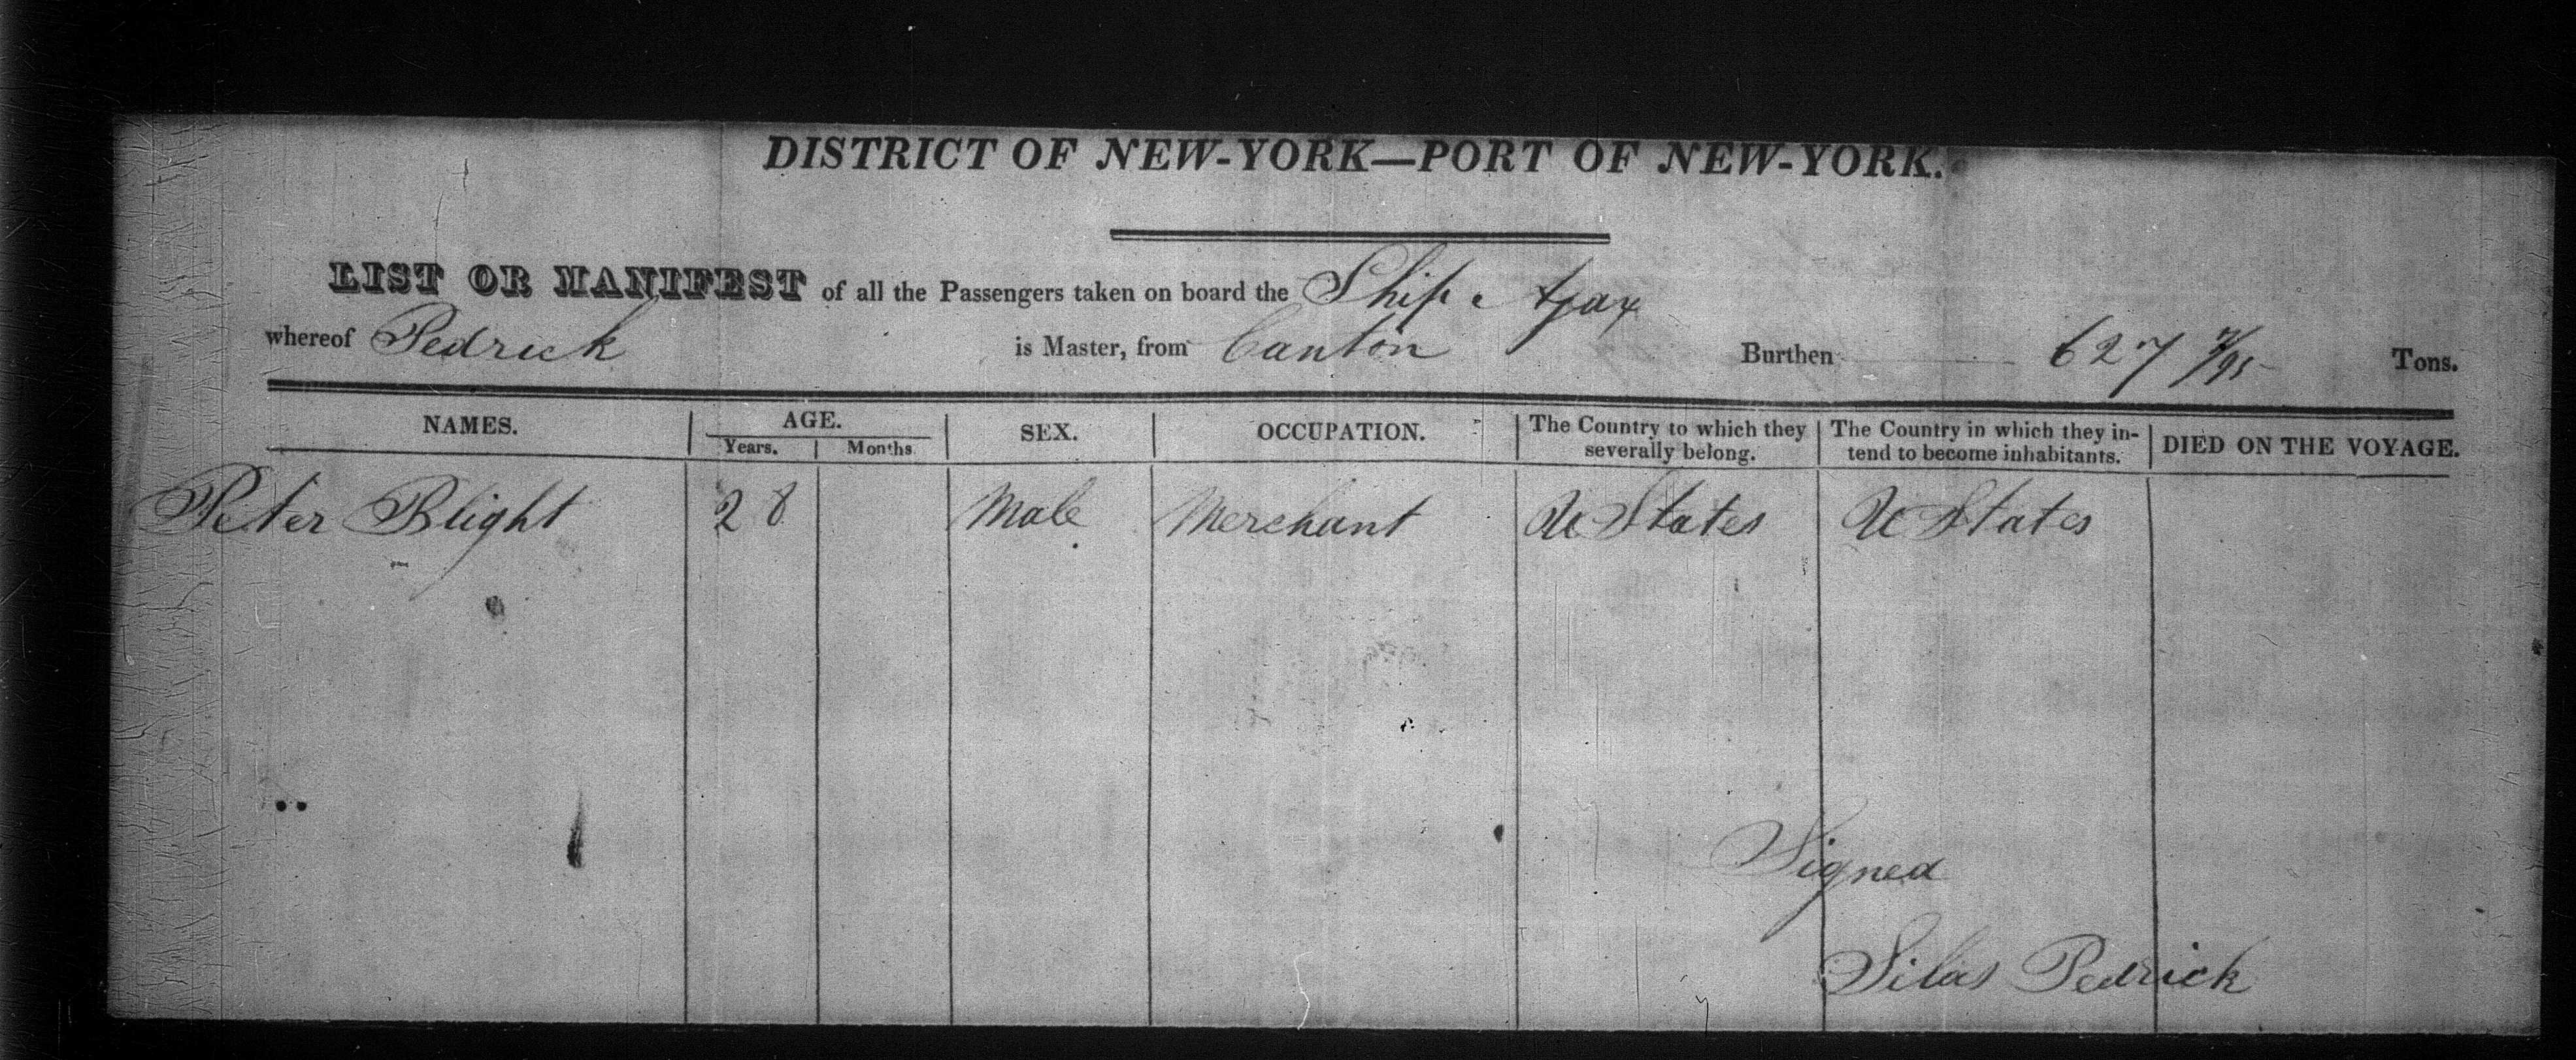 DISTRICT OF NEW-YORK—PORT OF NEW-YORK.
LIST OR MANIFEST of all the Passengers taken on board the Ship Ajax
whereof Pedrick is Master, from Canton Burthen 627 7/95 Tons.
NAMES. AGE. SEX. OCCUPATION. The Country to which they severally belong. The Country in which they in- tend to become inhabitants. DIED ON THE VOYAGE.
Years. Months
Peter Blight 28 Male Merchant U States U States
Signed
Silas Pedrick